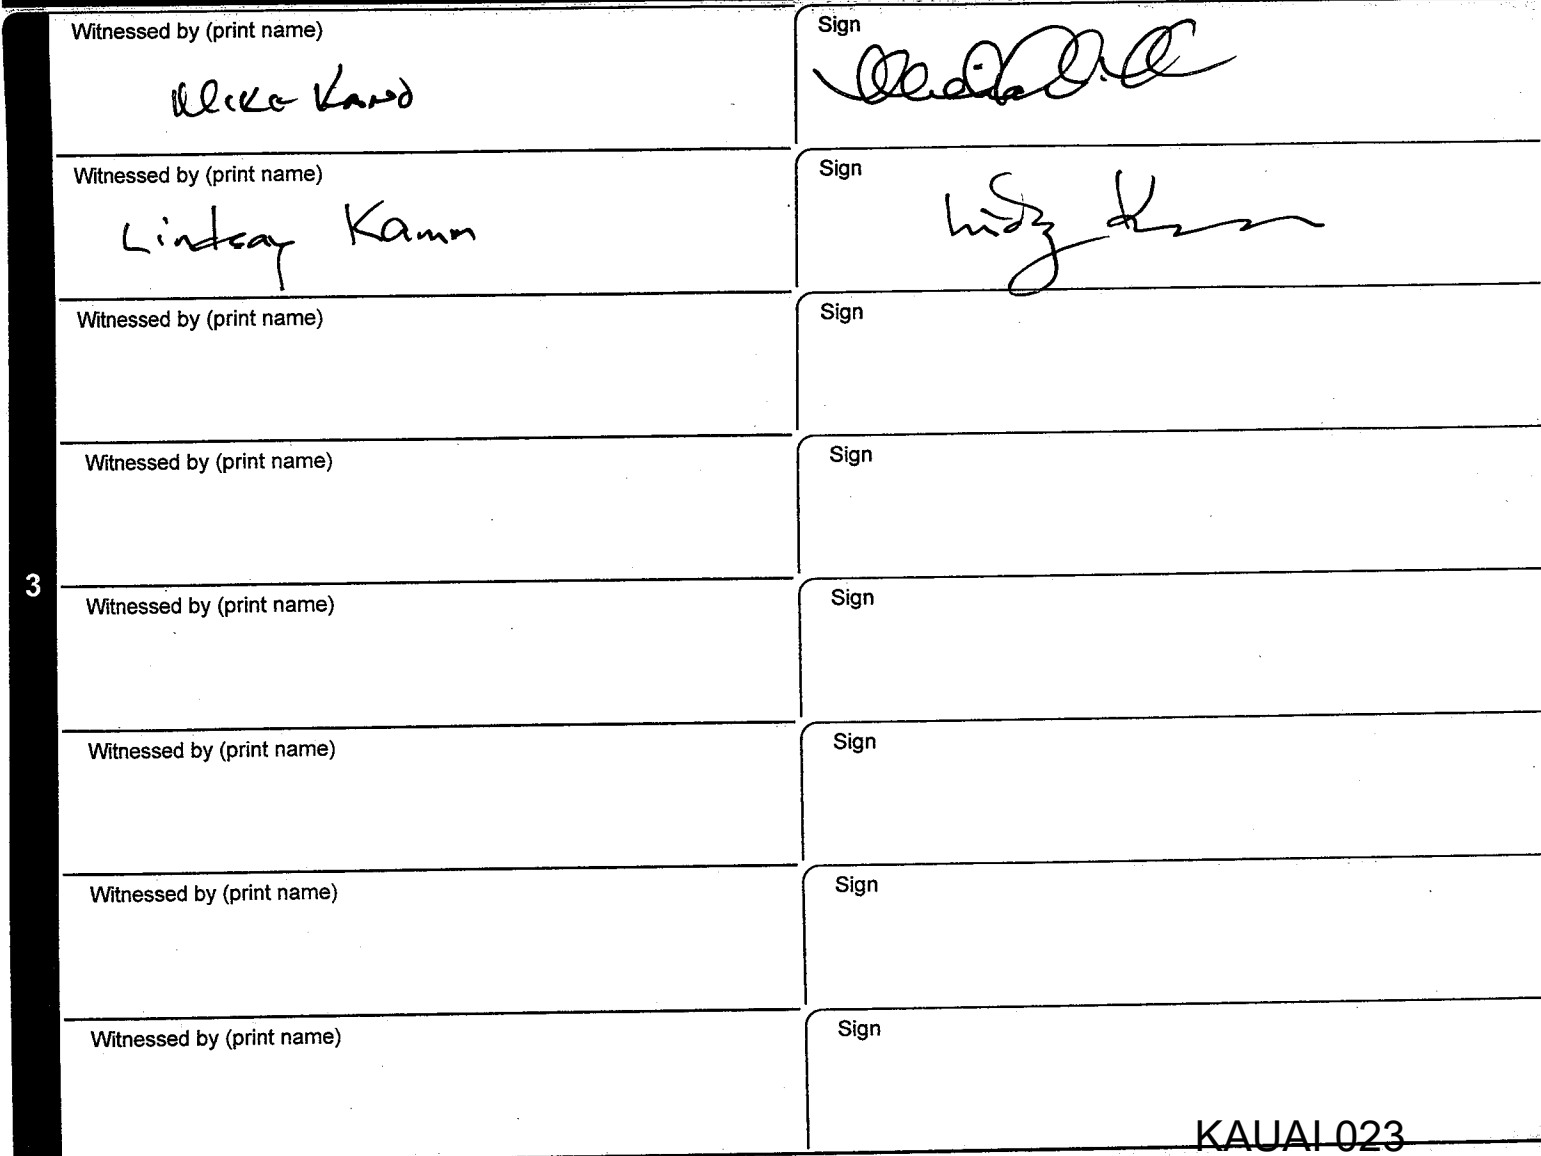 Witnessed by (print name) Sign
Witnessed by (print name) Sign
Lindsay Kamm
Witnessed by (print name) Sign
Witnessed by (print name) Sign
3
Witnessed by (print name) Sign
Witnessed by (print name) Sign
Witnessed by (print name) Sign
Witnessed by (print name) Sign
KAUAI 023